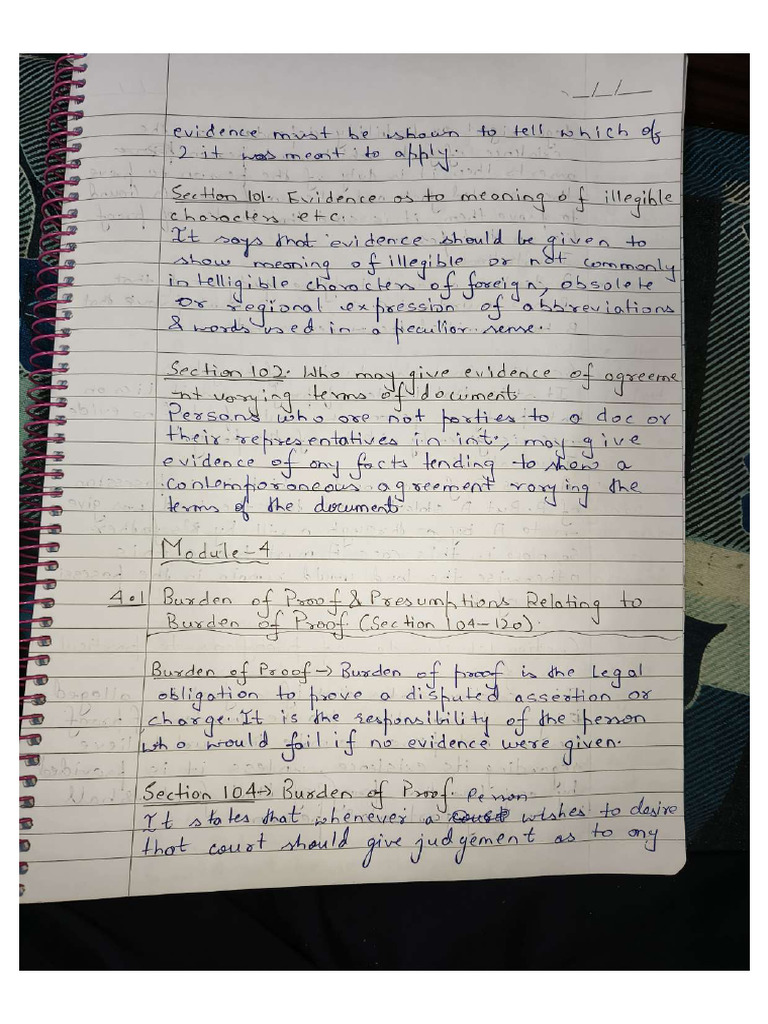 evidence must be shown to tell which of
2 it was meant to apply.
Section 101. Evidence as to meaning of illegible
characters etc.
It says that evidence should be given to
show meaning of illegible or not commonly
intelligible characters of foreign, obsolete
or regional expression of abbreviations
& words used in a peculiar sense.
Section 102. Who may give evidence of agreeme
-nt varying terms of document
Persons who are not parties to a doc or
their representatives in int., may give
evidence of any facts tending to show a
contemporaneous agreement varying the
terms of the document.
Module-4
4.1 Burden of Proof & Presumptions Relating to
Burden of Proof (Section 104-120).
Burden of Proof → Burden of proof is the legal
obligation to prove a disputed assertion or
charge. It is the responsibility of the person
who would fail if no evidence were given.
Section 104 → Burden of Proof.
It states that whenever a person wishes to desire
that court should give judgement as to any